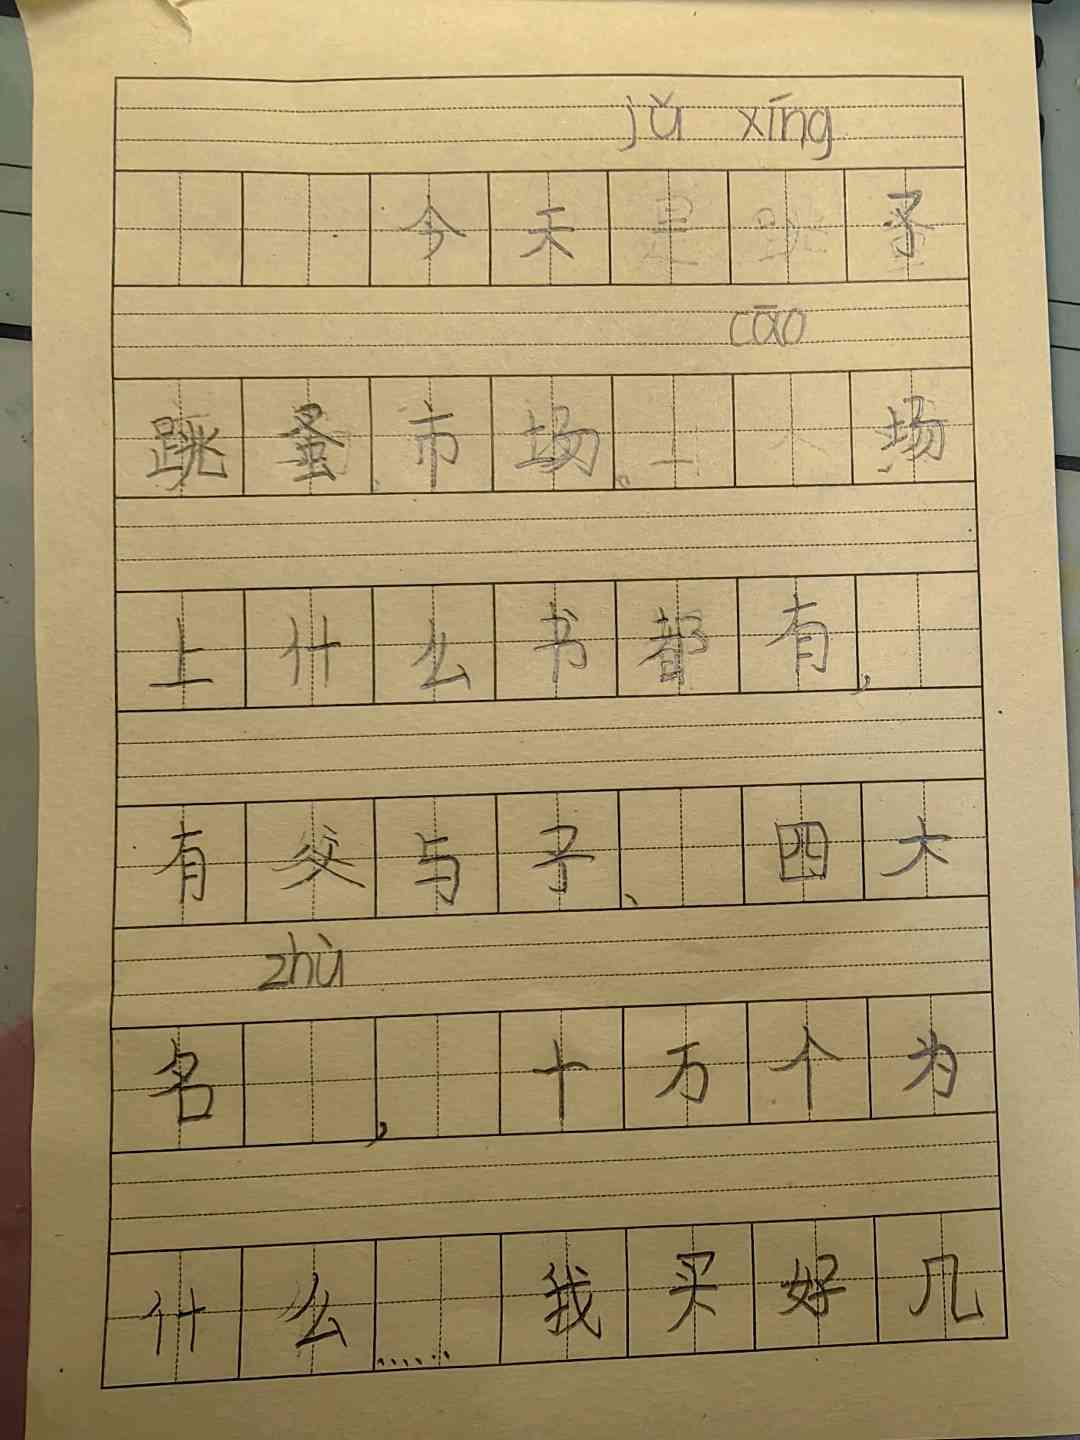 jǔ xíng
今天 子
cāo
跳蚤市场。 场
上什么书都有，
有父与子、四大
zhù
名 ，十万个为
什么……我买好几